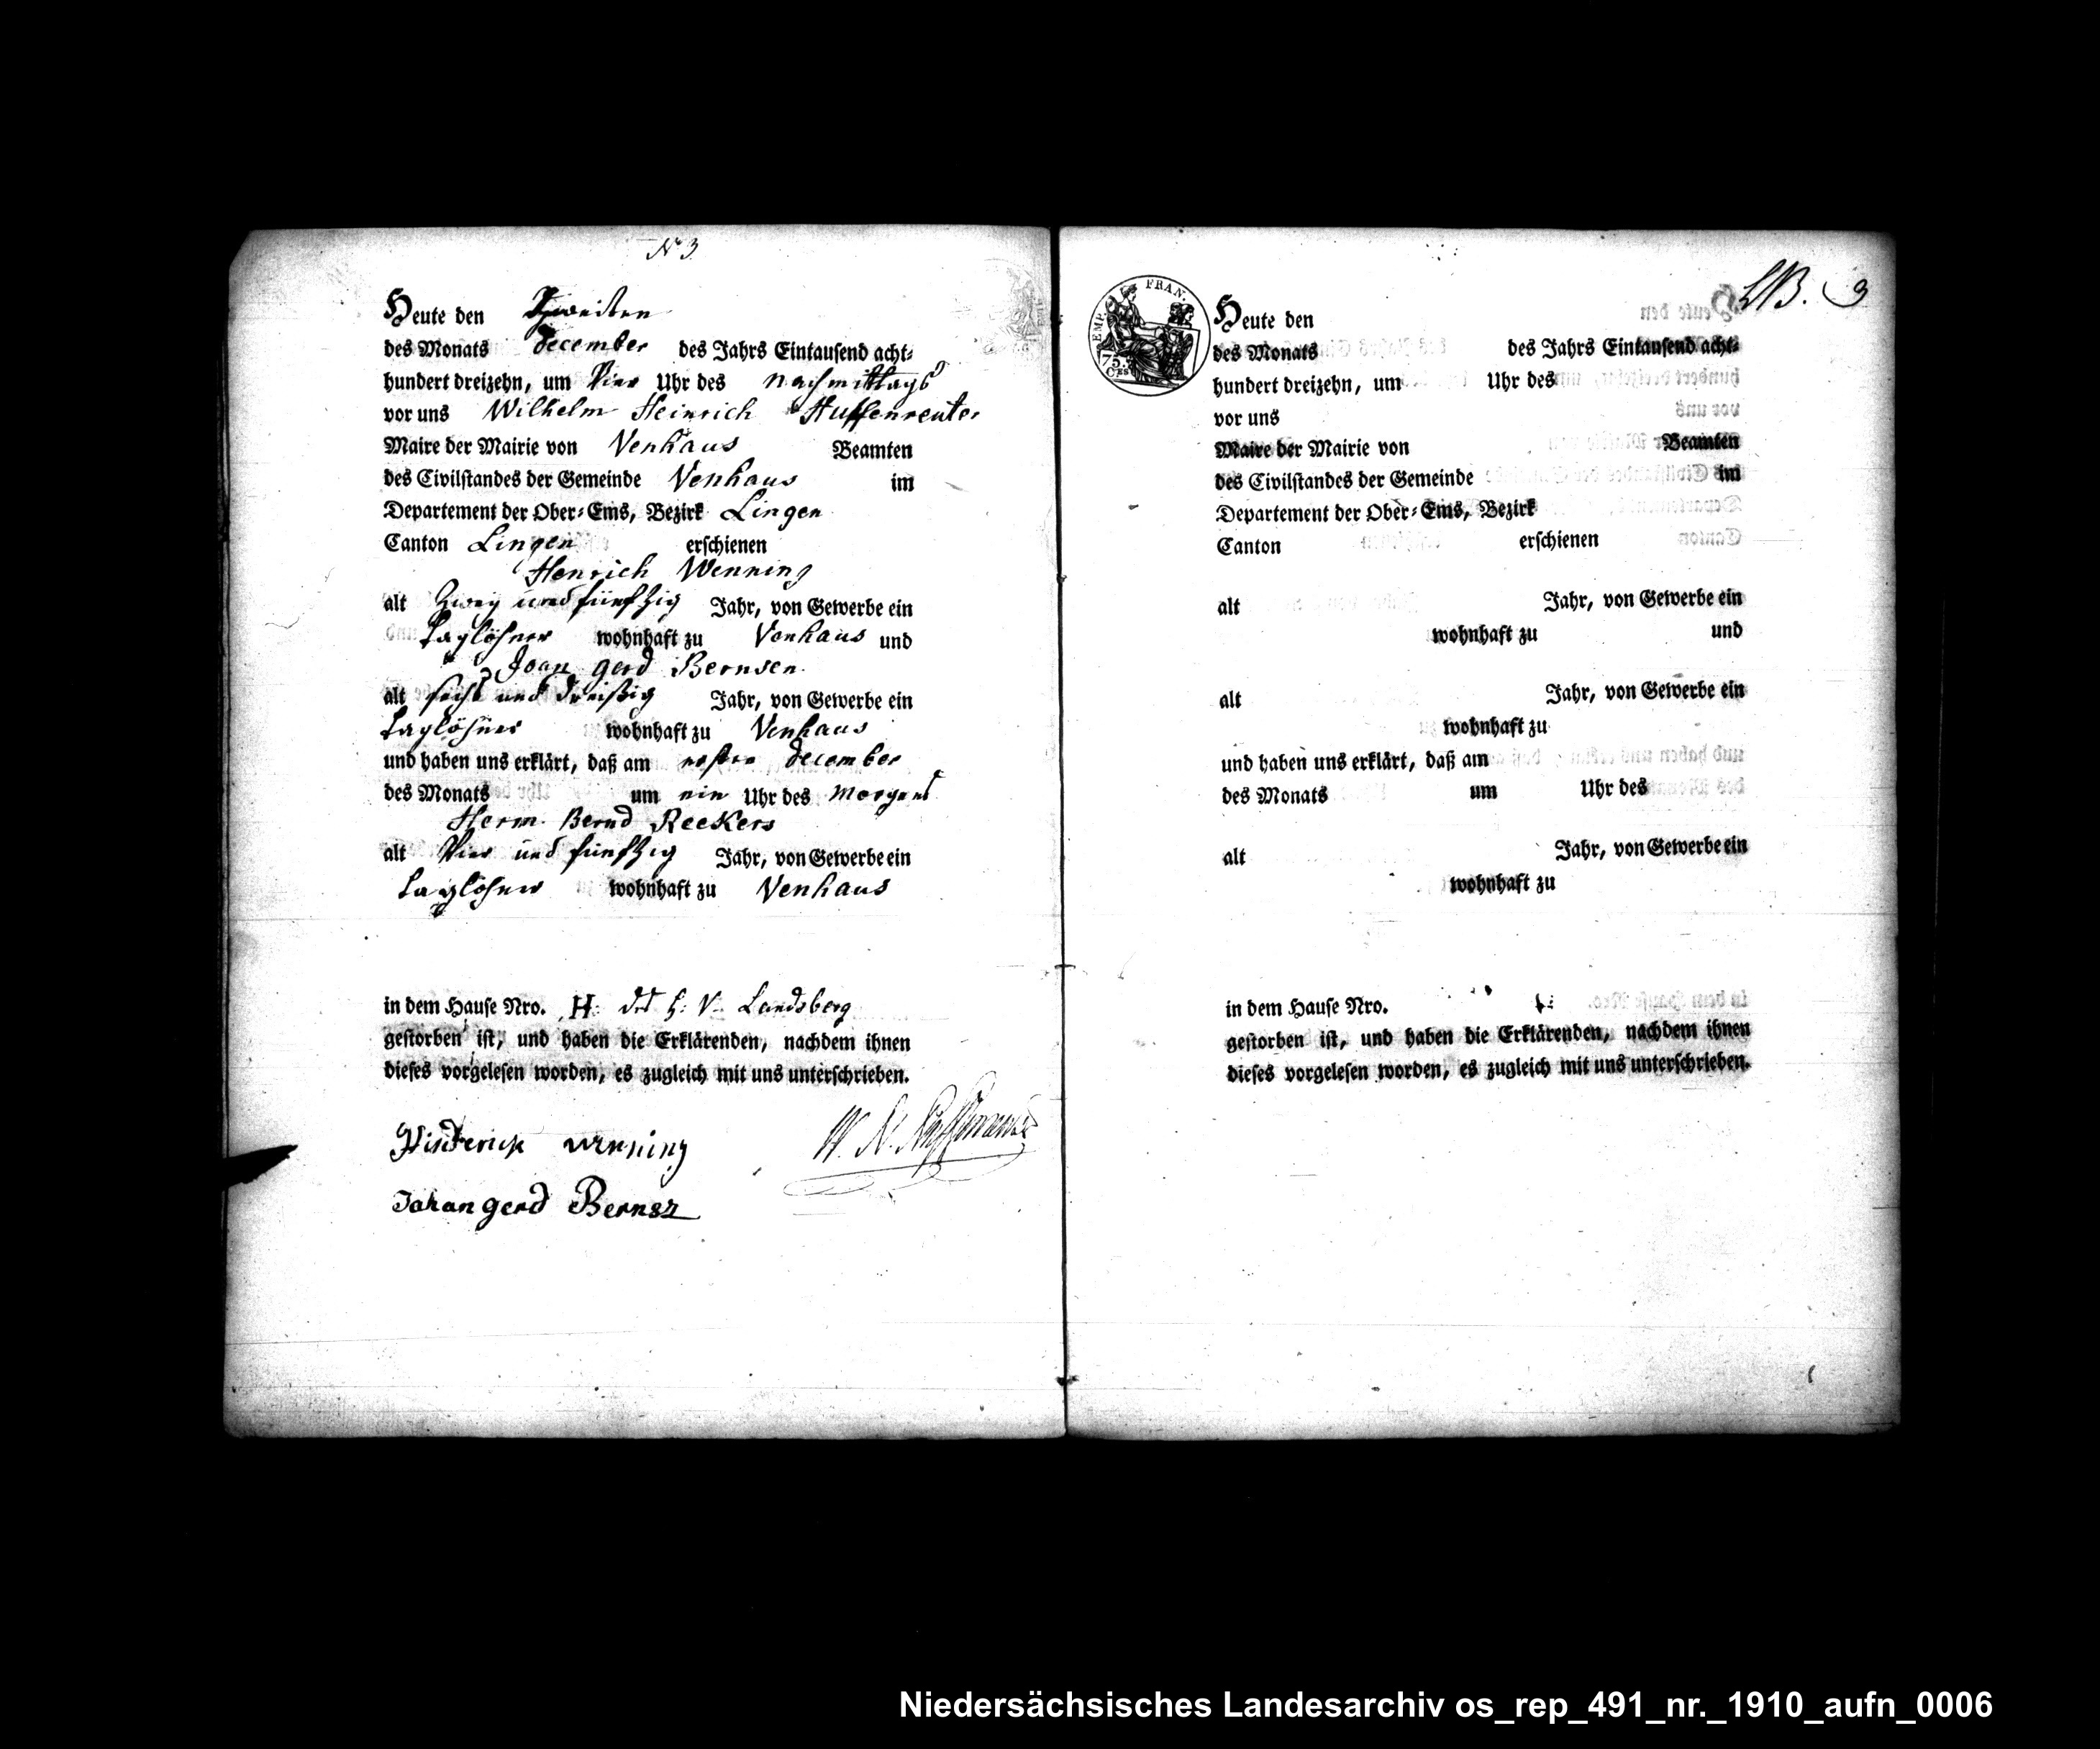 N 3
Heute den Zweiten
des Monats december des Jahrs Eintausend acht-
hundert dreizehn, um Vier Uhr des nachmittags
vor uns Wilhelm Heinrich
Maire der Mairie von Venhaus Beamten
des Civilstandes der Gemeinde Venhaus im
Departement der Ober-Ems, Bezirk Lingen
Canton Lingen erschienen
Henrich Wenning
alt Zwey und fünfzig Jahr, von Gewerbe ein
Taglöhner wohnhaft zu Venhaus und
Joan gerd Bernsen
alt sechs und dreißig Jahr, von Gewerbe ein
Taglöhner wohnhaft zu Venhaus
und haben uns erklärt, daß am ersten december
des Monats um ein Uhr des Morgens
Herm. Bernd Reekers
alt Vier und fünfzig Jahr, von Gewerbe ein
Taglöhner wohnhaft zu Venhaus
in dem Hause Nro. H: des H: V. Landsberg
gestorben ist, und haben die Erklärenden, nachdem ihnen
dieses vorgelesen worden, es zugleich mit uns unterschrieben.
wenning
Jahan gerd Bernsz
EMP. FRAN.
75. Ces
3
Heute den
des Monats des Jahrs Eintausend acht-
hundert dreizehn, um Uhr des
vor uns
Maire der Mairie von Beamten
des Civilstandes der Gemeinde im
Departement der Ober-Ems, Bezirk
Canton erschienen
alt Jahr, von Gewerbe ein
wohnhaft zu und
alt Jahr, von Gewerbe ein
wohnhaft zu
und haben uns erklärt, daß am
des Monats um Uhr des
alt Jahr, von Gewerbe ein
wohnhaft zu
in dem Hause Nro.
gestorben ist, und haben die Erklärenden, nachdem ihnen
dieses vorgelesen worden, es zugleich mit uns unterschrieben.
Niedersächsisches Landesarchiv os_rep_491_nr._1910_aufn_0006